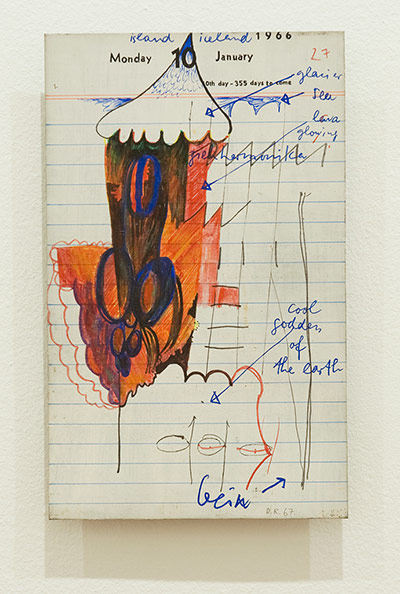 island iceland 1966
Monday 10 January
27
10th day - 355 days to come
glacier
sea
lava
glowing
ziehharmonika
cool
goddess
of
the earth
D.R. 67